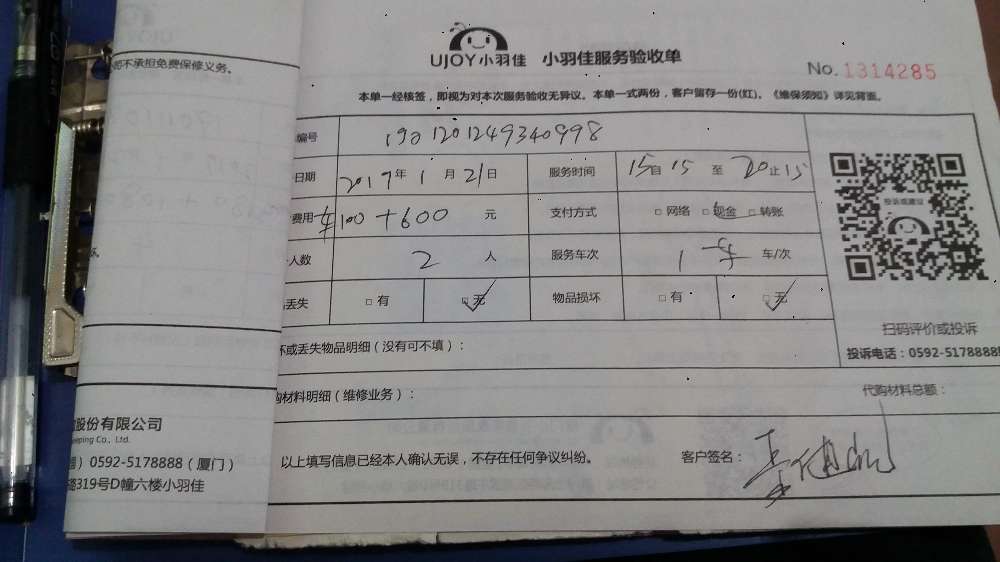 司不承担免费保修义务。
UJOY小羽佳 小羽佳服务验收单
No. 1314285
本单一经核签，即视为对本次服务验收无异议。本单一式两份，客户留存一份(红)。《维保须知》详见背面。
编号 1901201249340998
日期 2019年 1月 21日 服务时间 15自15 至 20止15
费用 车100+600 元 支付方式 □网络 □现金 □转账
人数 2 人 服务车次 1车 车/次
丢失 □有 □无 物品损坏 □有 □无
投诉或建议
扫码评价或投诉
投诉电话：0592-5178888
坏或丢失物品明细（没有可不填）：
购材料明细（维修业务）： 代购材料总额：
以上填写信息已经本人确认无误，不存在任何争议纠纷。 客户签名：
股份有限公司
eeping Co., Ltd.
）0592-5178888（厦门）
路319号D幢六楼小羽佳